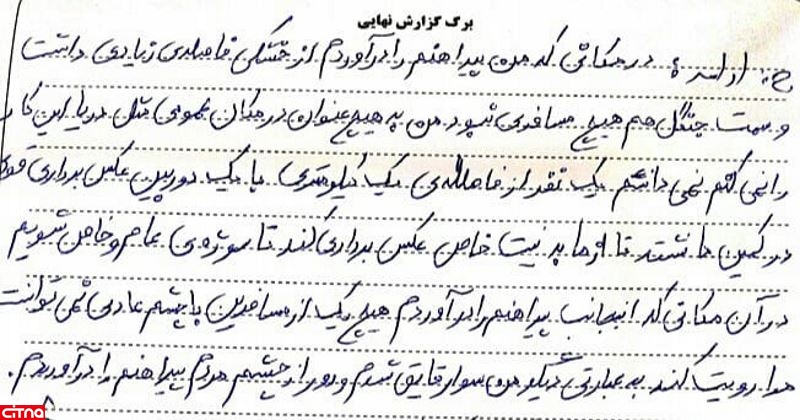 برگ گزارش نهایی
ج: ادامه: در مکانی که من پیراهنم را درآوردم از خشکی فاصله‌ی زیادی داشت
و سمت جنگل هم هیچ مسافری نبود من به هیچ عنوان در مکان عمومی مثل دریا این کار
را نمی کنم نمی دانستم یک نفر از فاصله‌ی یک کیلومتری با یک دوربین عکس برداری قوی
در کمین ما نشسته تا از ما به نیت خاص عکس برداری کند تا سوژه‌ی عام و خاص شویم
در آن مکانی که اینجانب پیراهنم را درآوردم هیچ یک از مسافرین با چشم عادی نمی توانست
ما را رویت کند به عبارتی دیگر من سوار قایق شدم و دور از چشم مردم پیراهنم را درآوردم.
citna